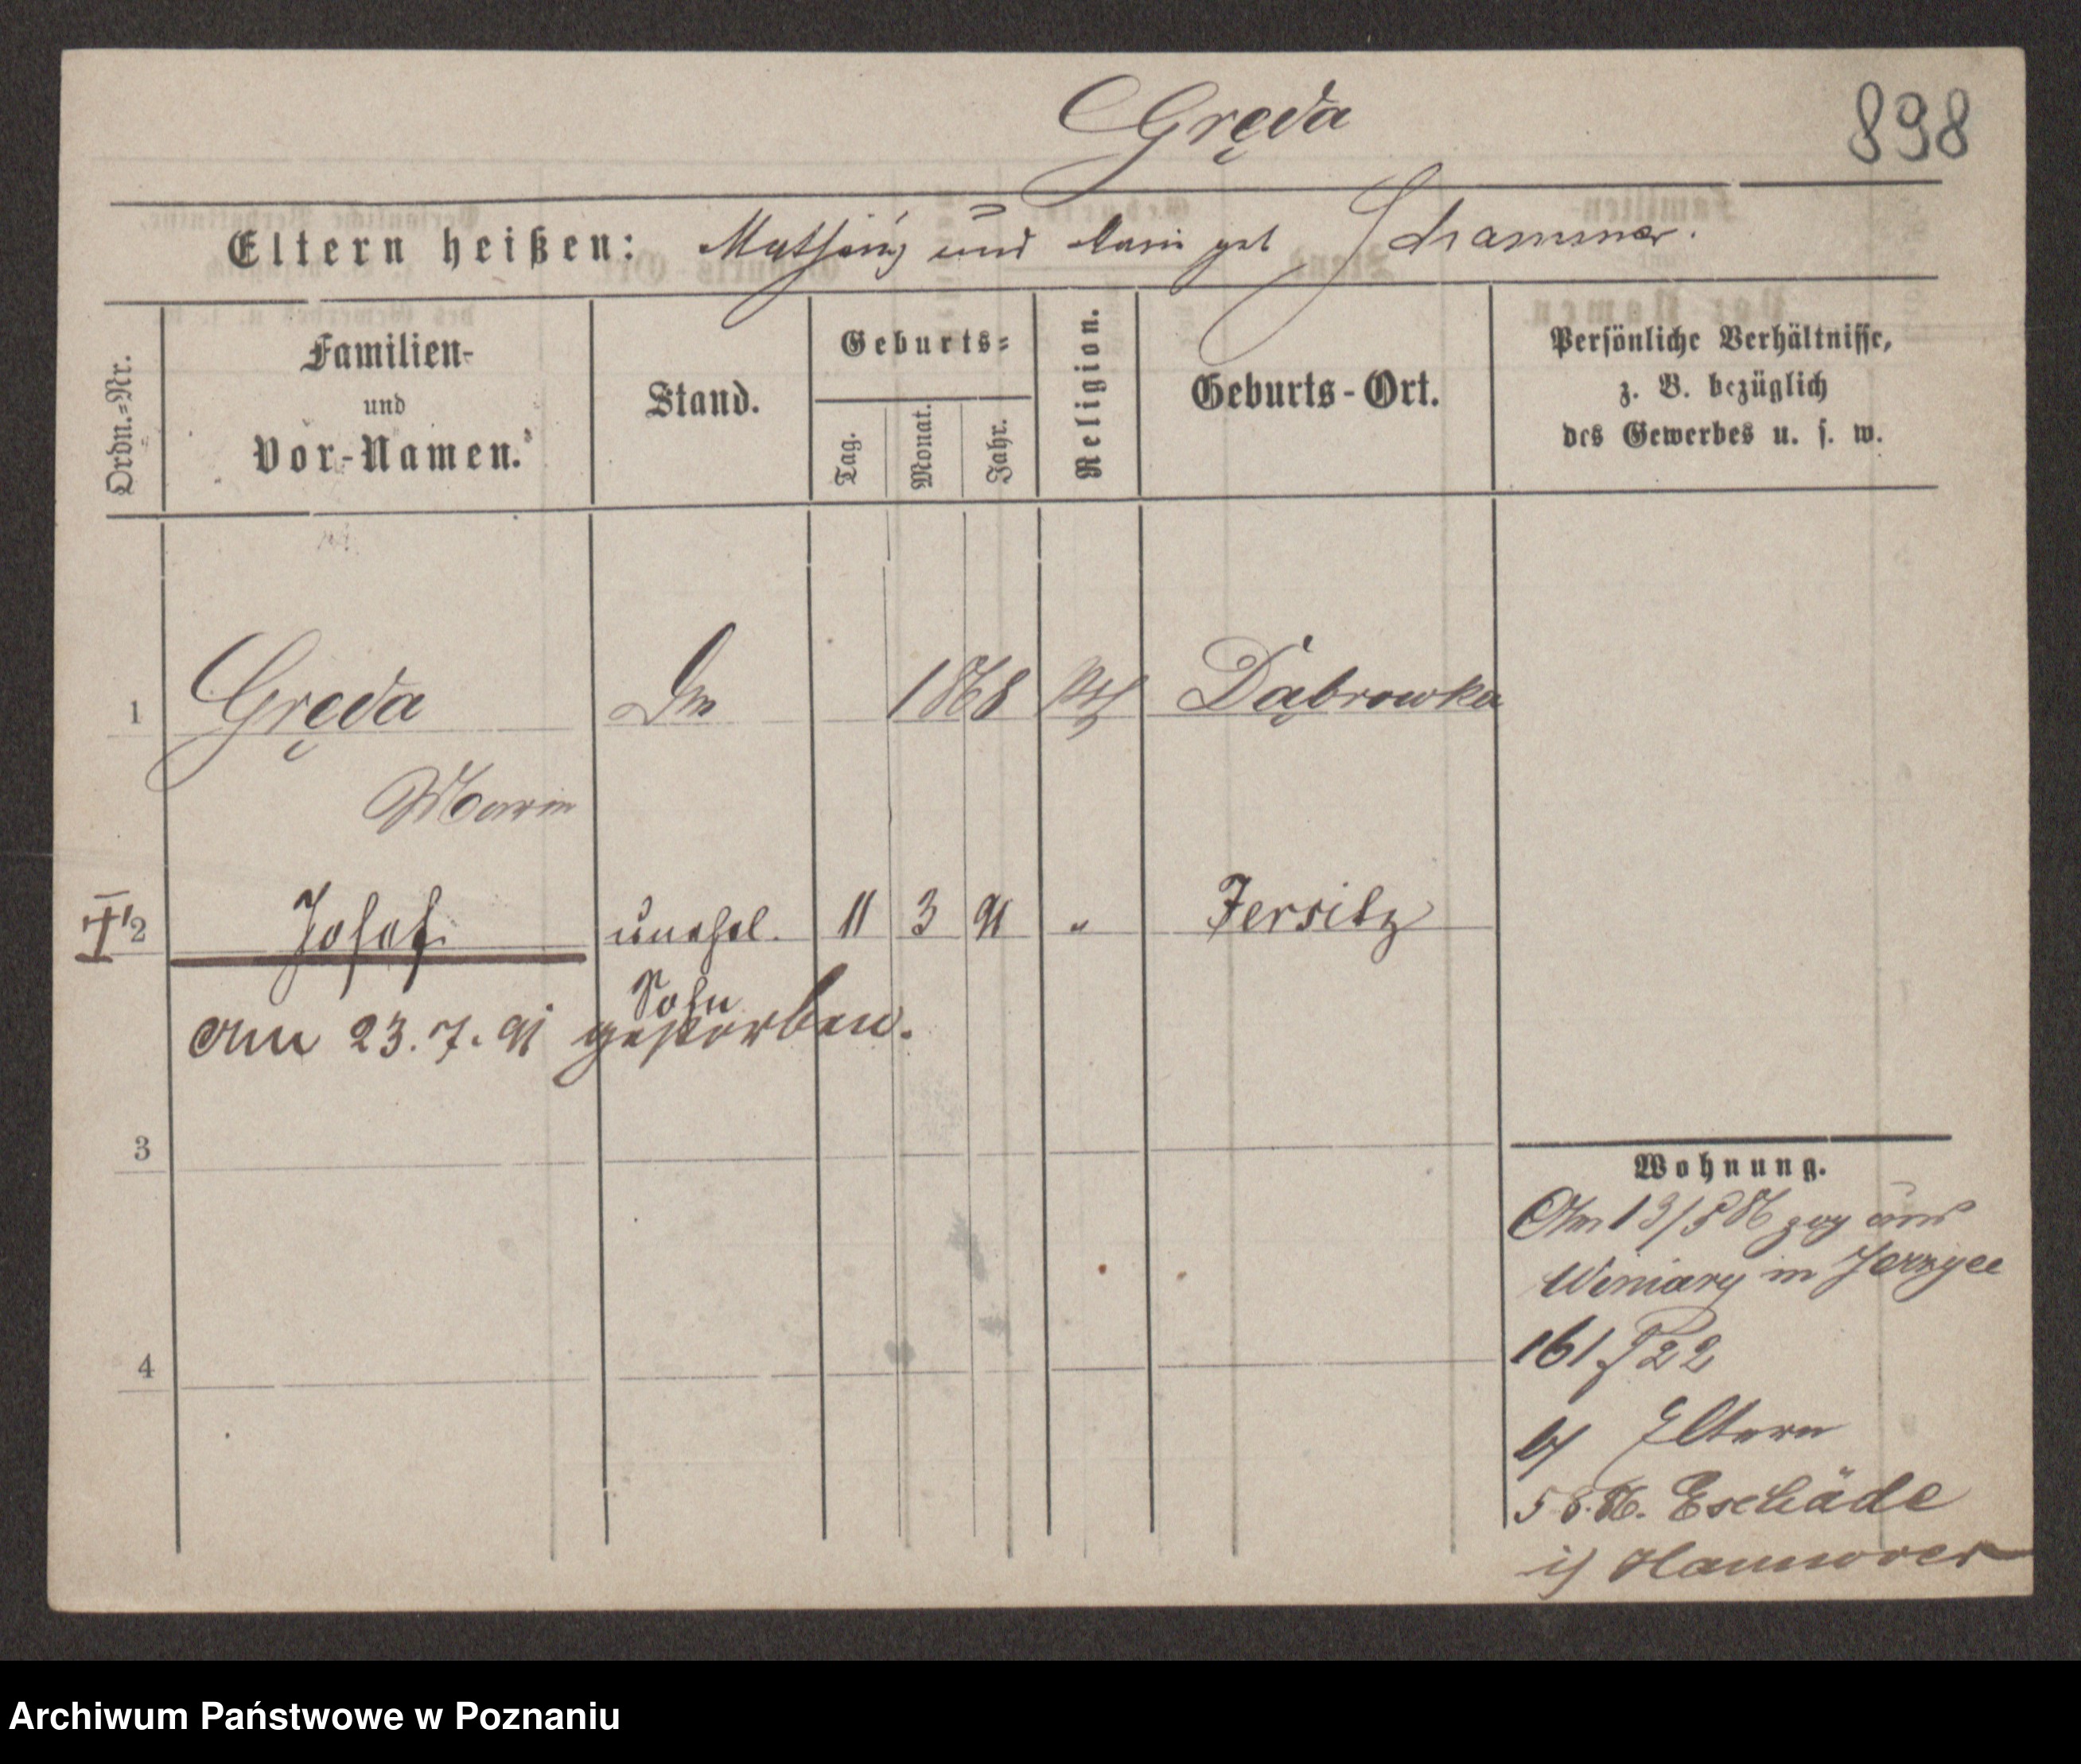 Gręda
898
Eltern heißen: Mathäus und Marie geb Schammer.
Ordn.=Nr.
Familien-
und
Vor-Namen.
Stand.
Geburts=
Tag.
Monat.
Jahr.
Religion.
Geburts-Ort.
Persönliche Verhältnisse,
z. B. bezüglich
des Gewerbes u. s. w.
1 Gręda 1868 kth Dąbrowka
Marie
2 Josef unehel. 11 3 91 " Jersitz
Sohn
Am 23.7.91 gestorben.
3
4
Wohnung.
Am 13/5 86 zog aus
Winiary in Jerzyce
161
b/ Eltern
5 8. 86. Eschäde
i/ Hannover
Archiwum Państwowe w Poznaniu